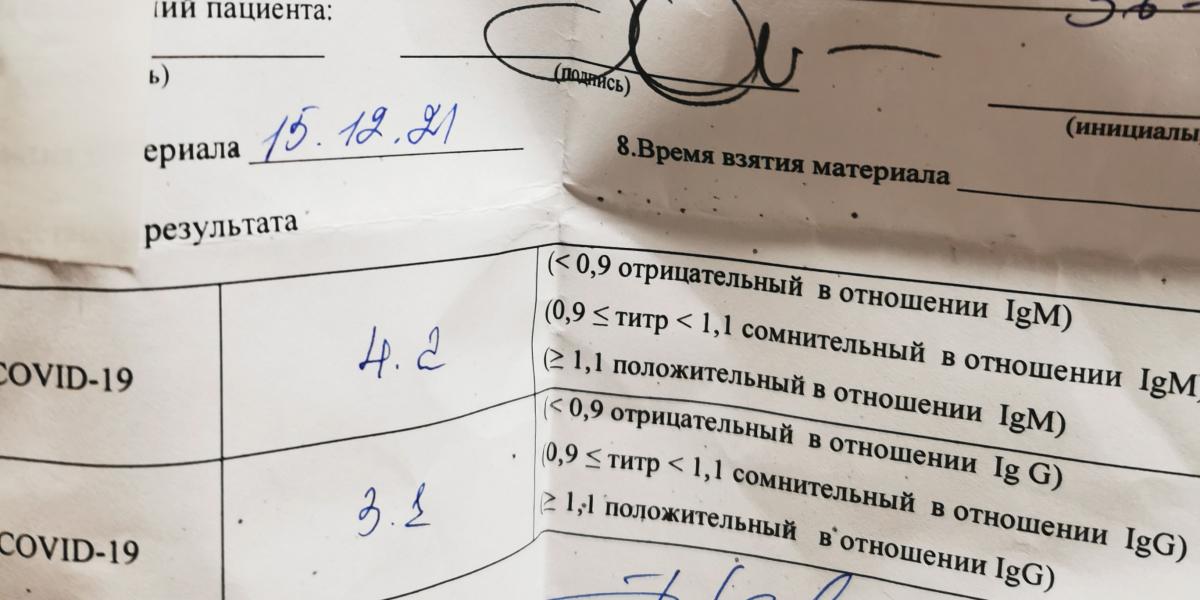 ий пациента:
ь)
(подпись)
(инициалы,
ериала 15.12.21
8.Время взятия материала
результата
COVID-19
4.2
(< 0,9 отрицательный в отношении IgM)
(0,9 ≤ титр < 1,1 сомнительный в отношении IgM)
(≥ 1,1 положительный в отношении IgM)
COVID-19
3.1
(< 0,9 отрицательный в отношении Ig G)
(0,9 ≤ титр < 1,1 сомнительный в отношении IgG)
≥ 1,1 положительный в отношении IgG)